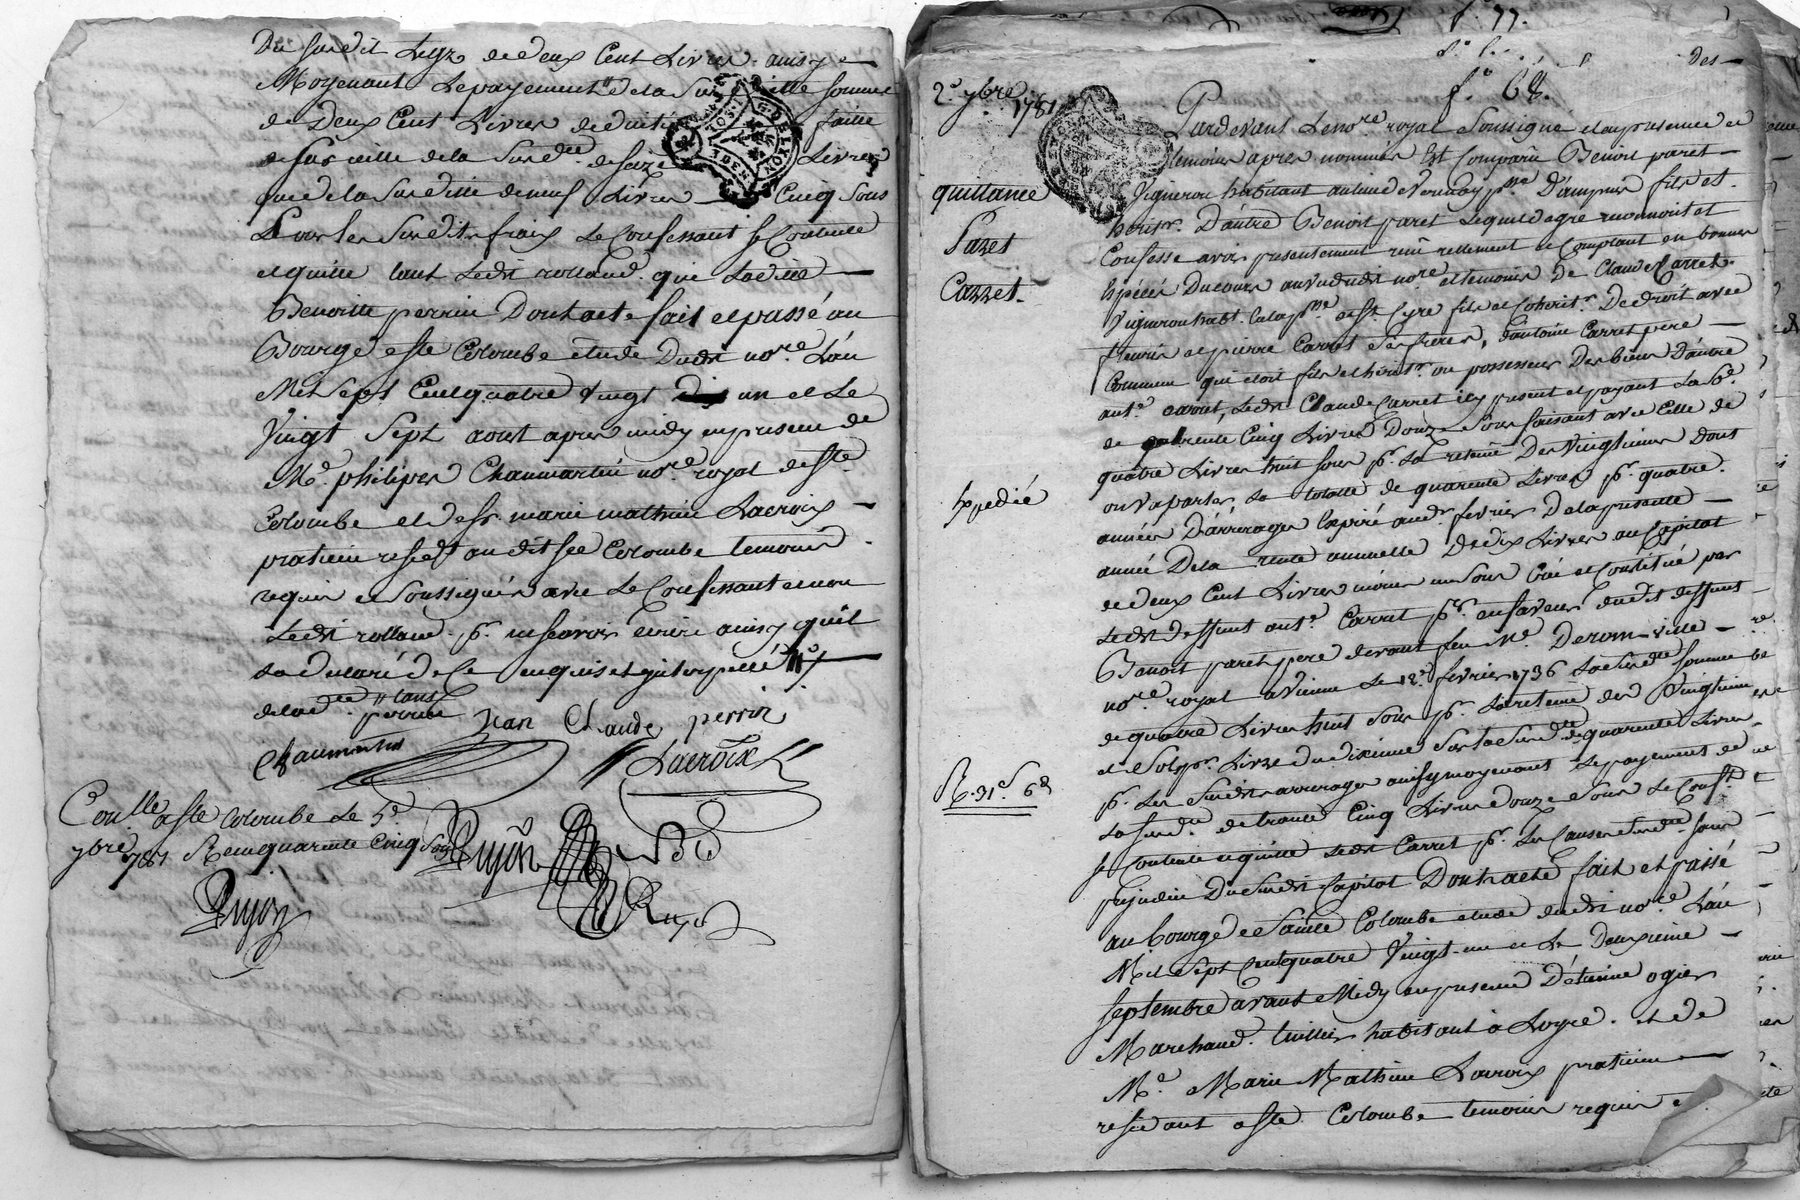 Du susdit Legz de deux Cent Livres. ainsy
Moyenant Le payement de la Sus ditte somme
de Deux Cent Livres de
de la Susdte de seize Livres
que de la Susditte de neuf Livres Cinq Sous
Pour les Susdits frais Le Confessant se Contente
et quitte tant Ledit rolland. que Laditte
Benoitte perrin Dont acte fait et passé au
Bourg de ste Colombe étude Dudit nore L'an
Mil Sept Cent quatre Vingt un et Le
Vingt Sept aout apres midy en presence de
Me. philipes Chaumartin nore. royal de ste.
Colombe et de sr. marie mathieu Lacroix
praticien residt au dit ste Colombe temoins
requis et Soussignés avec Le Confessant et non
Ledit rolland. pr. ne scavoir écrire ainsy qu'il
La declaré de Ce enquis et interpellé
de lade. perrin
Jean Claude perrin
Chaumartin
Lacroix
Conllé a ste Colombe Le 5e
7bre 1781 Recu quarente Cinq Sous
Dujon
Dujon
f. 77.
des
f. 68.
2e. 7bre. 1781
quittance
Paret
Carret.
Pardevant Le nore. royal Soussigné et en presence des
temoins apres nommés Est Comparu Benoit paret
Vigneron habitant au lieu de Vernay psse D'ampuis fils et
heritr. D'autre Benoit paret Lequel de gré reconnoit et
Confesse avoir presentement reçu reellement et Comptant en bonnes
Espéces Du cours au vu dudit nore. et temoins De Claude Carret.
Vigneron habt. en la psse de St Cyre fils et Coheritr. De droit avec
fleurie et pierre Carret Ses freres, d'antoine Carret pere
Commun qui étoit fils et héritr. ou possesseur Des biens D'autre
ante. carret, Ledit Claude Carret icy present et payant La Se.
de trente Cinq Livres Douze Sous faisant avec Celle de
quatre Livres huit Sous pr. La retenue Des Vingtiemes Dont
on va parler, La totalle de quarente Livres pr. quatre
Expedié
années D'arrerages Expiré au dr. fevrier De la presente
année De la rente annuelle De dix Livres au Capital
de deux Cent Livres moins un Sous Créé et Constitué par
Ledit deffunt ante. Carret pr. en faveur du dit deffunt
Benoit paret pere devant feu Me. Deromville
nore. royal a Vienne Le 12e. fevrier 1736 La Susdte somme
de quatre Livres huit Sous pr. La retenue des Vingtiemes
et Sols pr. Livre du dixieme Sur la Susdte de quarente Livres
R. 31s. 6d
pr. Les Susdits arrerages ainsy moyenant Le payement de
La Susdte. de trente Cinq Livres Douze Sous Le Confst
se Contente et quitte Ledit Carret pr. Les Causes Susdtes sans
prejudice Du Susdit Capital Dont acte fait et passé
au bourg de Sainte Colombe étude dudit nore. L'an
Mil Sept Cent quatre Vingt un et Le Deuxieme
septembre avant Midy en presence D'étienne ogier
Marchand. tuillier habitant à Loyre. et de
Me. Marie Mathieu Lacroix praticien
residant a ste Colombe temoins requis et